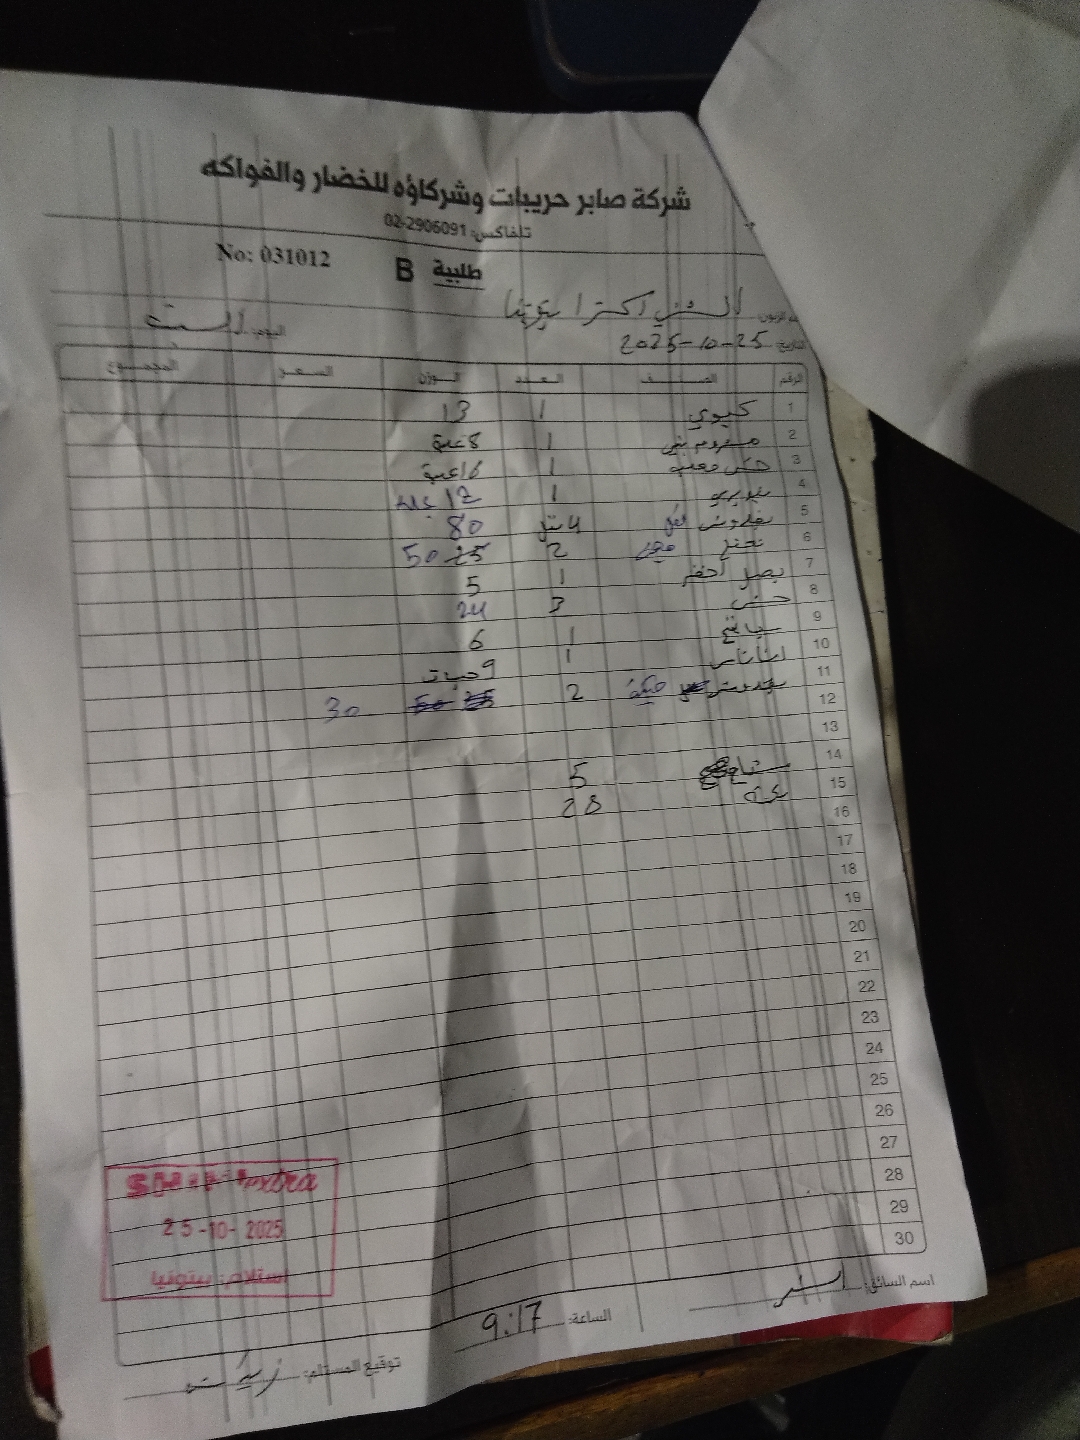 شركة صابر حريبات وشركاؤه للخضار والفواكه
تلفاكس: 02-2906091
No: 031012
طلبية B
الشني اكسترا بيتونيا
اليوم: السبت
التاريخ: 25-10-2025
الرقم الصنف العدد الوزن السعر المجموع
1 كيوي 1 13
2 مشروم بني 1 8 علبة
3 1 16 علبة
4 1 12 علبة
5 بقدونس 4 80
6 نعنع 2 50
7 بصل اخضر 1 5
8 خس 3 24
9 سبانخ 1 6
10 اناناس 1 9 حبات
11 2 30
12
13
14 5
15 28
16
17
18
19
20
21
22
23
24
25
26
27
28
29
30
Extra
25-10-2025
استلام: بيتونيا
اسم السائق:
الساعة: 9:17
توقيع المستلم: